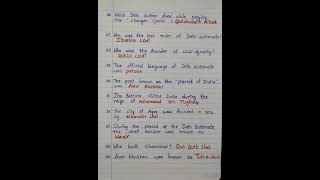 26 Which Delhi sultan died while playing
the 'Chaugan (polo) :- Qutubuddin Aibak
27 Who was the last ruler of Delhi sultanate
Ibrahim Lodi
28 Who was the founder of Lodi dynasty?
Bahlol Lodi
29 The official language of Delhi sultanate
was persian
30 The poet known as the "parrot of India"
was Amir khusrau
31 Ibn Battuta visited India during the
reign of Muhammad bin Tughlaq
32 The city of Agra was founded in 1504
by Sikandar Lodi
33 During the period of the Delhi Sultanate
the chief minister was known as
Wazir
34 Who built Charminar? Quli Qutb Shah
35 Amir Khusrau was known as